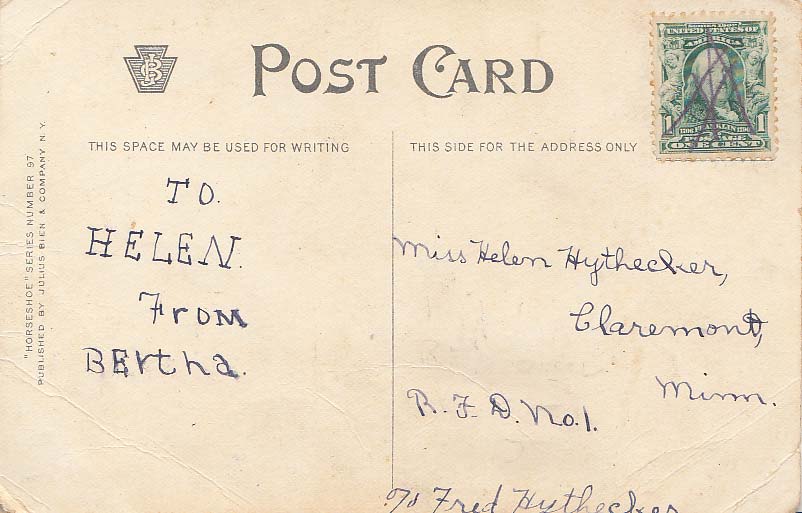 POST CARD
SERIES 1902
UNITED STATES OF
AMERICA
1 1706 FRANKLIN 1790 1
POSTAGE
ONE CENT
THIS SPACE MAY BE USED FOR WRITING
TO.
HELEN.
From
BErtha.
THIS SIDE FOR THE ADDRESS ONLY
Miss Helen Hythecker,
Claremont,
Minn.
R. F. D. No. 1.
c/o Fred Hythecker
"HORSESHOE" SERIES NUMBER 97
PUBLISHED BY JULIUS BIEN & COMPANY N. Y.